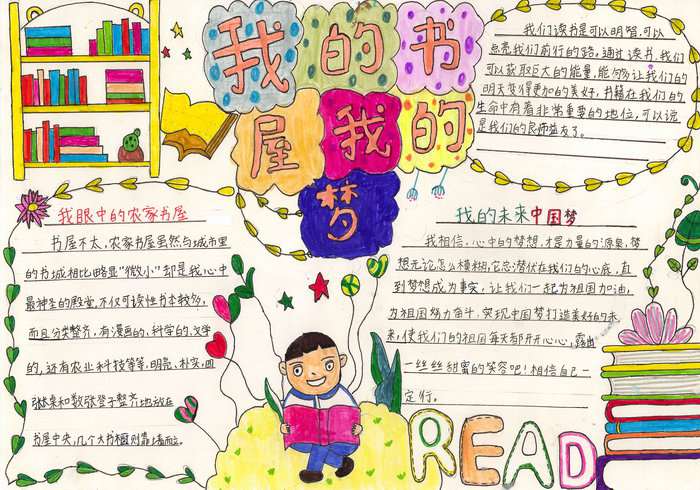 我的书
屋我的
梦
我们读书是可以明智,可以
点亮我们前行的路,通过读书,我们
可以获取巨大的能量,能够让我们的
明天变得更加的美好,书籍在我们的
生命中有着非常重要的地位,可以说
是我们的良师益友了。
我眼中的农家书屋
书屋不太,农家书屋虽然与城市里
的书城相比略显“微小”却是我心中
最神圣的殿堂,不仅可读性书本较多,
而且分类整齐,有漫画的、科学的、文学
的,还有农业科技等等,明亮、朴实,四
张桌和数张凳子整齐地放在
书屋中央,几个大书橱则靠墙而立。
我的未来中国梦
我相信,心中的梦想,才是力量的源泉,梦
想无论怎么模糊,它总潜伏在我们的心底,直
到梦想成为事实,让我们一起为祖国加油,
为祖国努力奋斗,实现中国梦打造美好的未
来,使我们的祖国每天都开开心心,露出
一丝丝甜蜜的笑容吧!相信自己一
定行。
READ